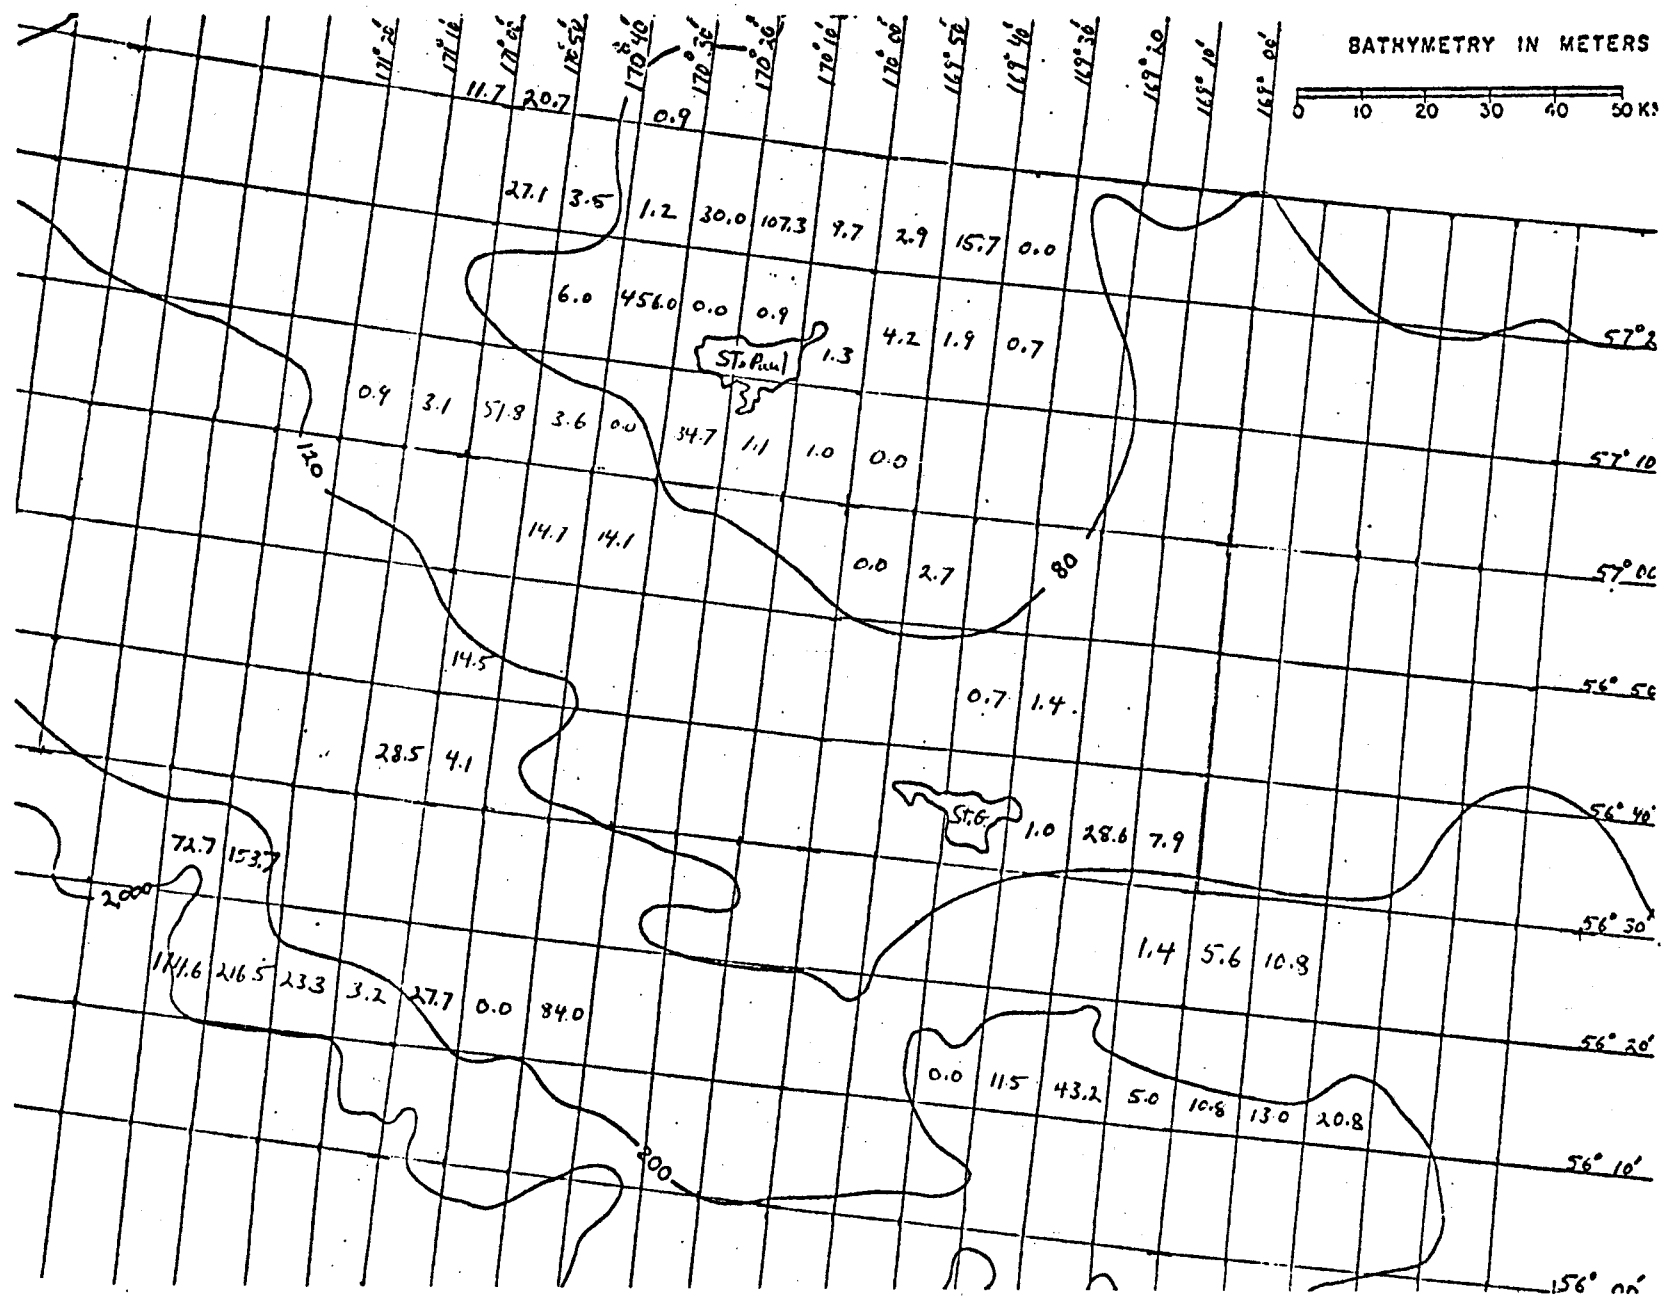 BATHYMETRY IN METERS
0 10 20 30 40 50
171° 20' 171° 10' 171° 00' 170° 50' 170° 40' 170° 30' 170° 20' 170° 10' 170° 00' 169° 50' 169° 40' 169° 30' 169° 20 169° 10' 169° 00'
11.7 20.7 0.9
27.1 3.5 1.2 30.0 107.3 9.7 2.9 15.7 0.0
6.0 456.0 0.0 0.9
57° 2
4.2 1.9 0.7
St. Paul 1.3
0.9 3.1 51.8 3.6 0.0 34.7 1.1 1.0 0.0
57° 10
120
14.7 14.1
0.0 2.7
80
57° 00
14.5
0.7 1.4
56° 50
28.5 4.1
St.G. 1.0 28.6 7.9
56° 40'
72.7 153.7
2000
56° 30'
1.4 5.6 10.8
216.5 23.3 3.2 27.7 0.0 84.0
56° 20'
0.0 11.5 43.2 5.0 10.8 13.0 20.8
200
56° 10'
56° 00'